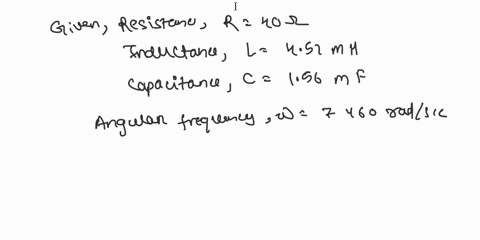 Given, Resistance, R = 40 Ω
Inductance, L = 4.52 mH
Capacitance, C = 1.56 mF
Angular frequency, ω = 7 460 rad/sec